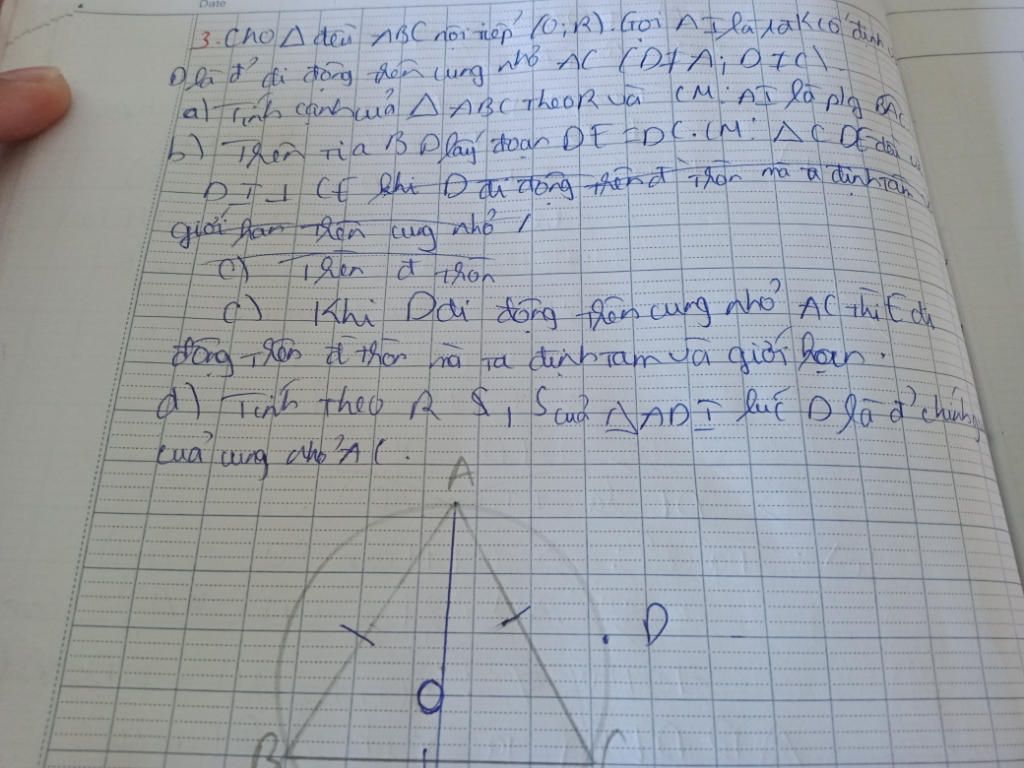 Date
3. Cho Δ đều ABC nội tiếp (O;R). Gọi AI là đ k cố định
D là đ' di động trên cung nhỏ AC (D ≠ A; D ≠ C)
a) Tính cạnh của Δ ABC theo R và CM: AI là p/g BAC
b) Trên tia BD lấy đoạn DE = DC. CM: Δ CDE đều và
DI ⊥ CE khi D di động trên đ tròn mà ta định tâm,
giới hạn trên cung nhỏ
c) Trên đ tròn
c) Khi D di động trên cung nhỏ AC thì E di
động trên đ tròn mà ta định tâm và giới hạn.
d) Tính theo R S, S của Δ ADI lúc D là đ' chính g
của cung nhỏ AC.
A
D
O
B C
I